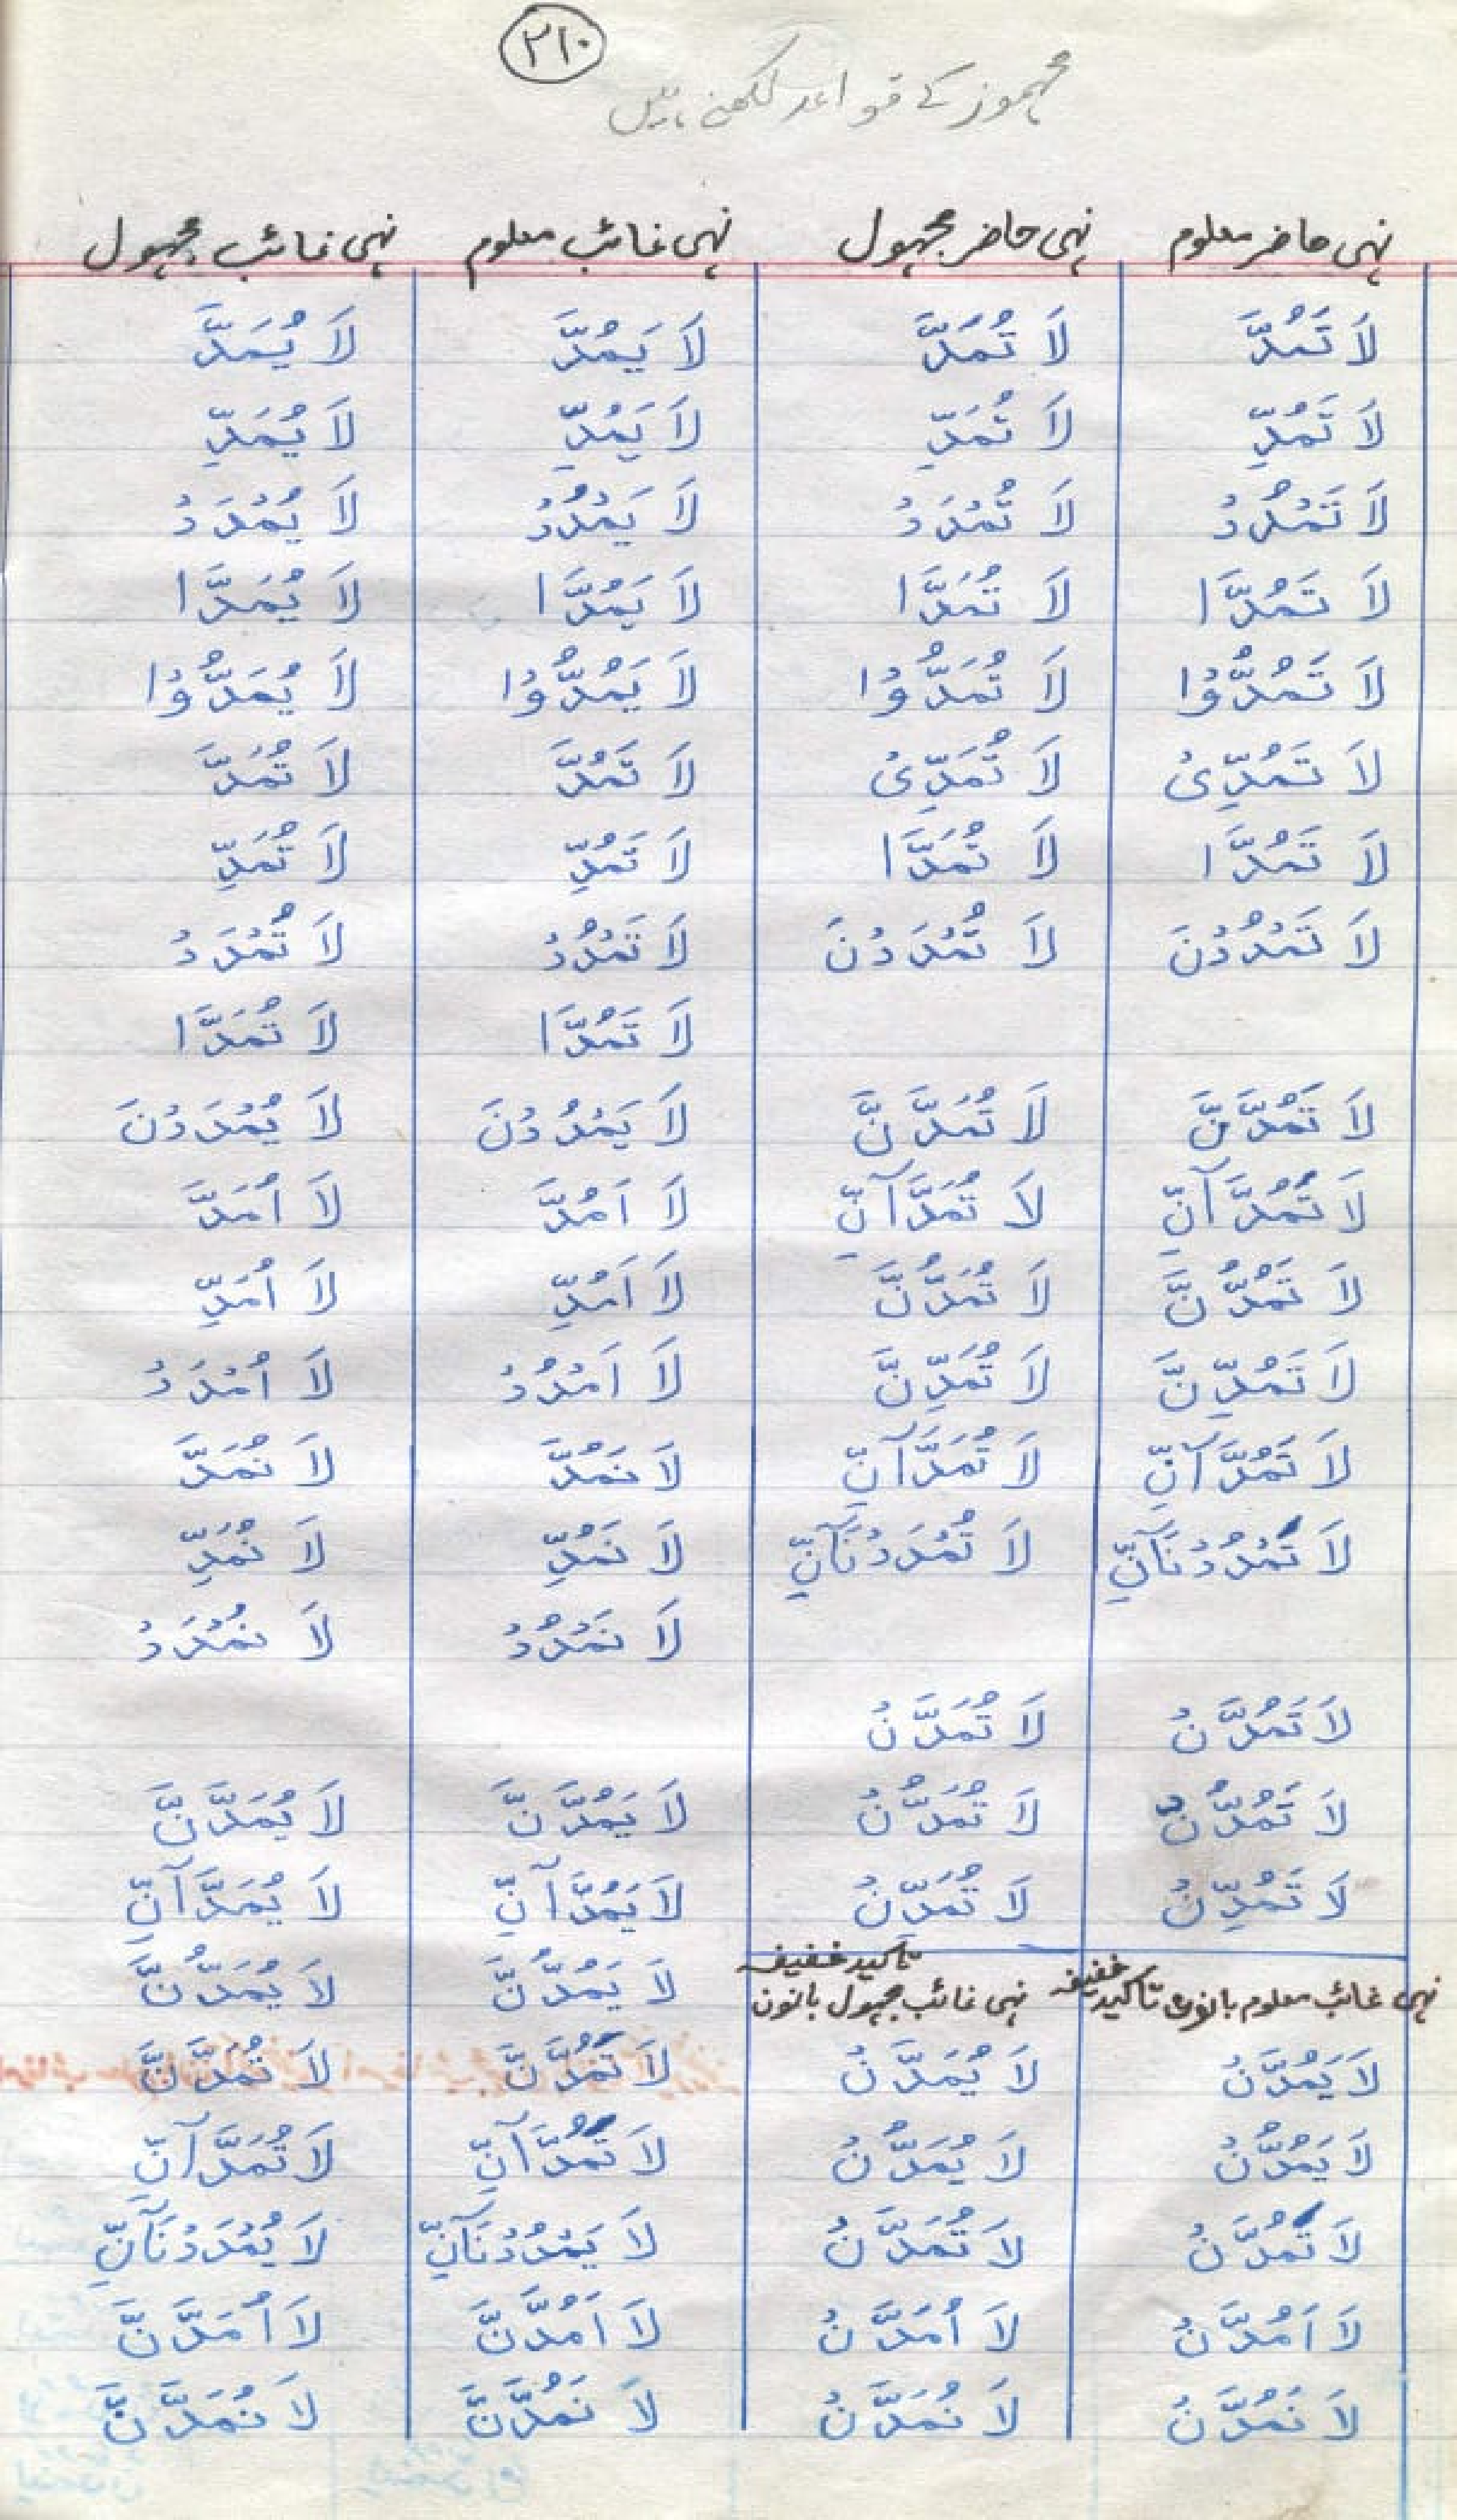 ٢١٠
مہموز کے قواعد لکھنے ہیں
نہی حاضر معلوم نہی حاضر مجہول نہی غائب معلوم نہی غائب مجہول
لَا تَمُدَّ لَا تُمَدَّ لَا يَمُدَّ لَا يُمَدَّ
لَا تَمُدِّ لَا تُمَدِّ لَا يَمُدِّ لَا يُمَدِّ
لَا تَمْدُدْ لَا تُمْدَدْ لَا يَمْدُدْ لَا يُمْدَدْ
لَا تَمُدَّا لَا تُمَدَّا لَا يَمُدَّا لَا يُمَدَّا
لَا تَمُدُّوْا لَا تُمَدُّوْا لَا يَمُدُّوْا لَا يُمَدُّوْا
لَا تَمُدِّىْ لَا تُمَدِّىْ لَا تَمُدَّ لَا تُمَدَّ
لَا تَمُدَّا لَا تُمَدَّا لَا تَمُدِّ لَا تُمَدِّ
لَا تَمْدُدْنَ لَا تُمْدَدْنَ لَا تَمْدُدْ لَا تُمْدَدْ
لَا تَمُدَّا لَا تُمَدَّا
لَا تَمُدَّنَّ لَا تُمَدَّنَّ لَا يَمْدُدْنَ لَا يُمْدَدْنَ
لَا تَمُدَّآنِّ لَا تُمَدَّآنِّ لَا اَمُدَّ لَا اُمَدَّ
لَا تَمُدُّنَّ لَا تُمَدُّنَّ لَا اَمُدِّ لَا اُمَدِّ
لَا تَمُدِّنَّ لَا تُمَدِّنَّ لَا اَمْدُدْ لَا اُمْدَدْ
لَا تَمُدَّآنِّ لَا تُمَدَّآنِّ لَا نَمُدَّ لَا نُمَدَّ
لَا تَمْدُدْنَآنِّ لَا تُمْدَدْنَآنِّ لَا نَمُدِّ لَا نُمَدِّ
لَا نَمْدُدْ لَا نُمْدَدْ
لَا تَمُدَّنْ لَا تُمَدَّنْ
لَا تَمُدُّنْ لَا تُمَدُّنْ لَا يَمُدَّنَّ لَا يُمَدَّنَّ
لَا تَمُدِّنْ لَا تُمَدِّنْ لَا يَمُدَّآنِّ لَا يُمَدَّآنِّ
نہی غائب معلوم بانون تاکید خفیفہ نہی غائب مجہول بانون تاکید خفیفہ لَا يَمُدُّنَّ لَا يُمَدُّنَّ
لَا يَمُدَّنْ لَا يُمَدَّنْ لَا تَمُدَّنَّ لَا تُمَدَّنَّ
لَا يَمُدُّنْ لَا يُمَدُّنْ لَا تَمُدَّآنِّ لَا تُمَدَّآنِّ
لَا تَمُدَّنْ لَا تُمَدَّنْ لَا يَمْدُدْنَآنِّ لَا يُمْدَدْنَآنِّ
لَا اَمُدَّنْ لَا اُمَدَّنْ لَا اَمُدَّنَّ لَا اُمَدَّنَّ
لَا نَمُدَّنْ لَا نُمَدَّنْ لَا نَمُدَّنَّ لَا نُمَدَّنَّ